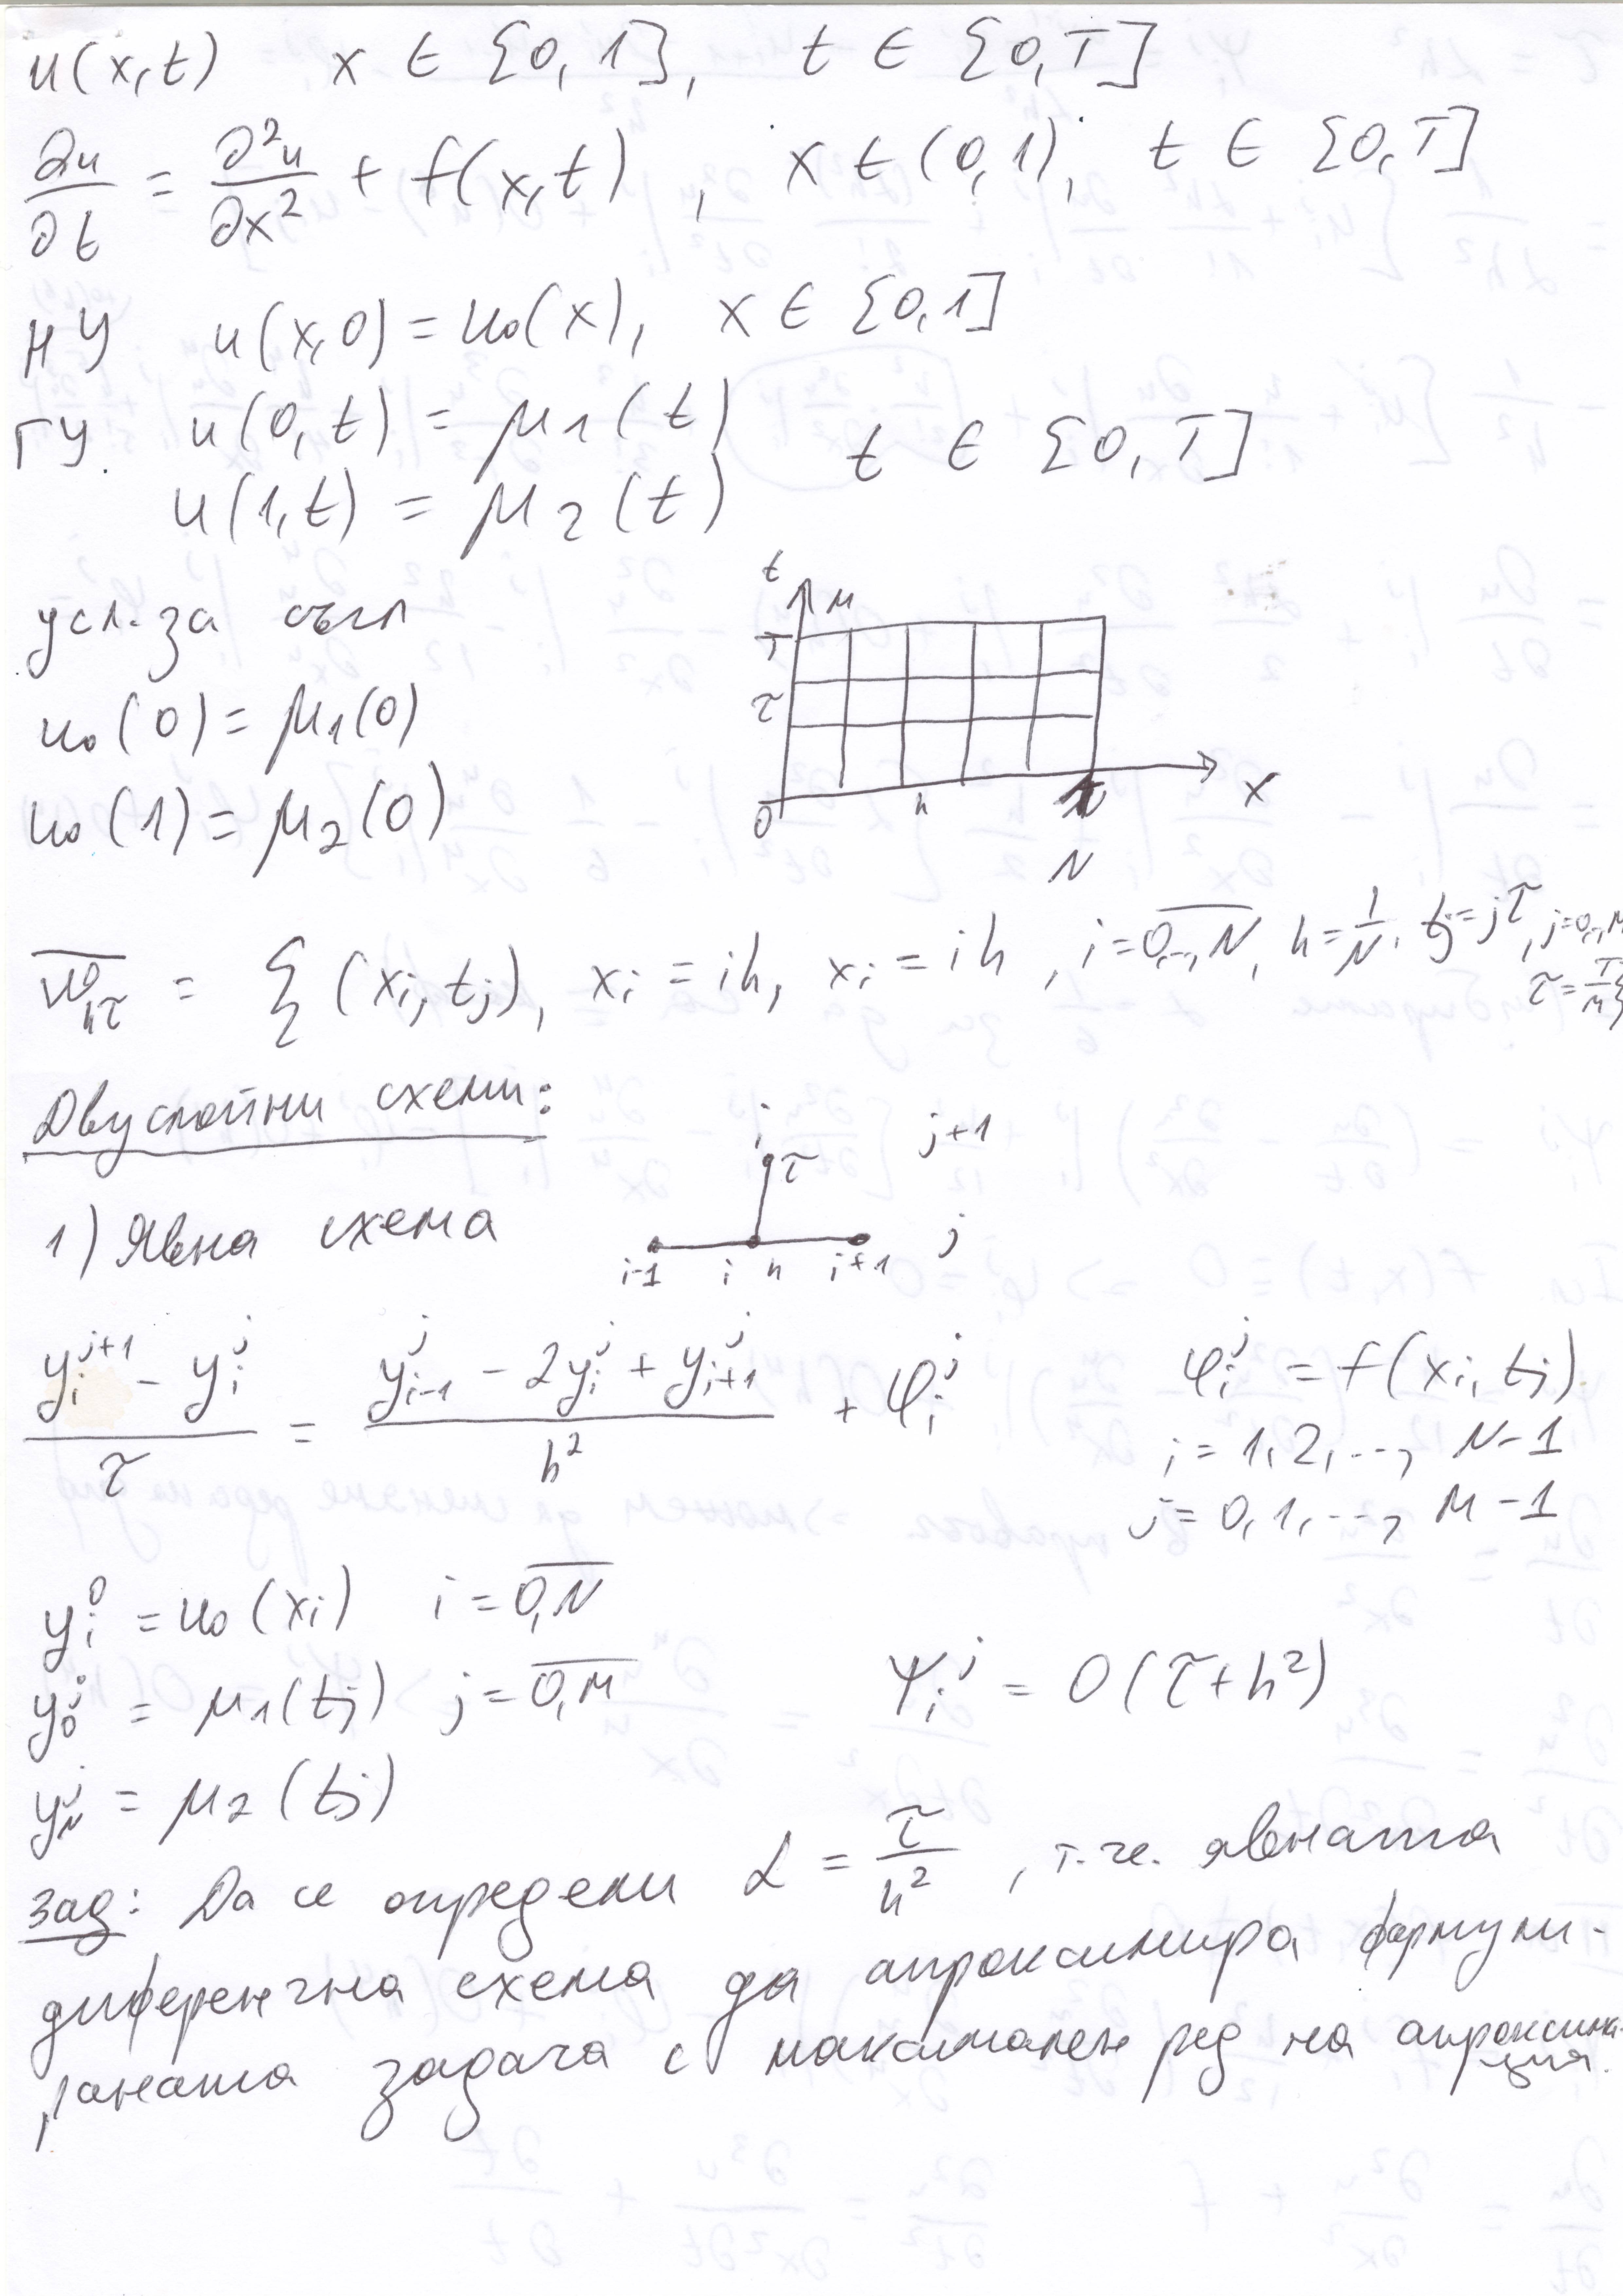 u(x,t) x ∈ [0,1], t ∈ [0,T]
∂u/∂t = ∂²u/∂x² + f(x,t), x ∈ (0,1), t ∈ [0,T]
НУ u(x,0) = u₀(x), x ∈ [0,1]
ГУ. u(0,t) = μ₁(t)
u(1,t) = μ₂(t) t ∈ [0,T]
усл. за съгл
u₀(0) = μ₁(0)
u₀(1) = μ₂(0)
t
M
T
τ
0 h 1 x
N
ω̅_hτ = {(xᵢ,tⱼ), xᵢ = ih, xᵢ = ih, i = 0,..,N, h = 1/N, tⱼ = jτ, j = 0,..,M
τ = T/M}
Двуслойни схеми:
1) Явна схема
i j+1
τ
j
i-1 i h i+1
(yᵢʲ⁺¹ - yᵢʲ)/τ = (yᵢ₋₁ʲ - 2yᵢʲ + yᵢ₊₁ʲ)/h² + φᵢʲ φᵢʲ = f(xᵢ,tⱼ)
i = 1,2,..., N-1
j = 0,1,..., M-1
yᵢ⁰ = u₀(xᵢ) i = 0,N
y₀ʲ = μ₁(tⱼ) j = 0,M ψᵢʲ = O(τ+h²)
y_Nʲ = μ₂(tⱼ)
Зад: Да се определи α = τ/h², т.че. явната
диференчна схема да апроксимира формули-
раната задача с максимален ред на апроксима-
ция.